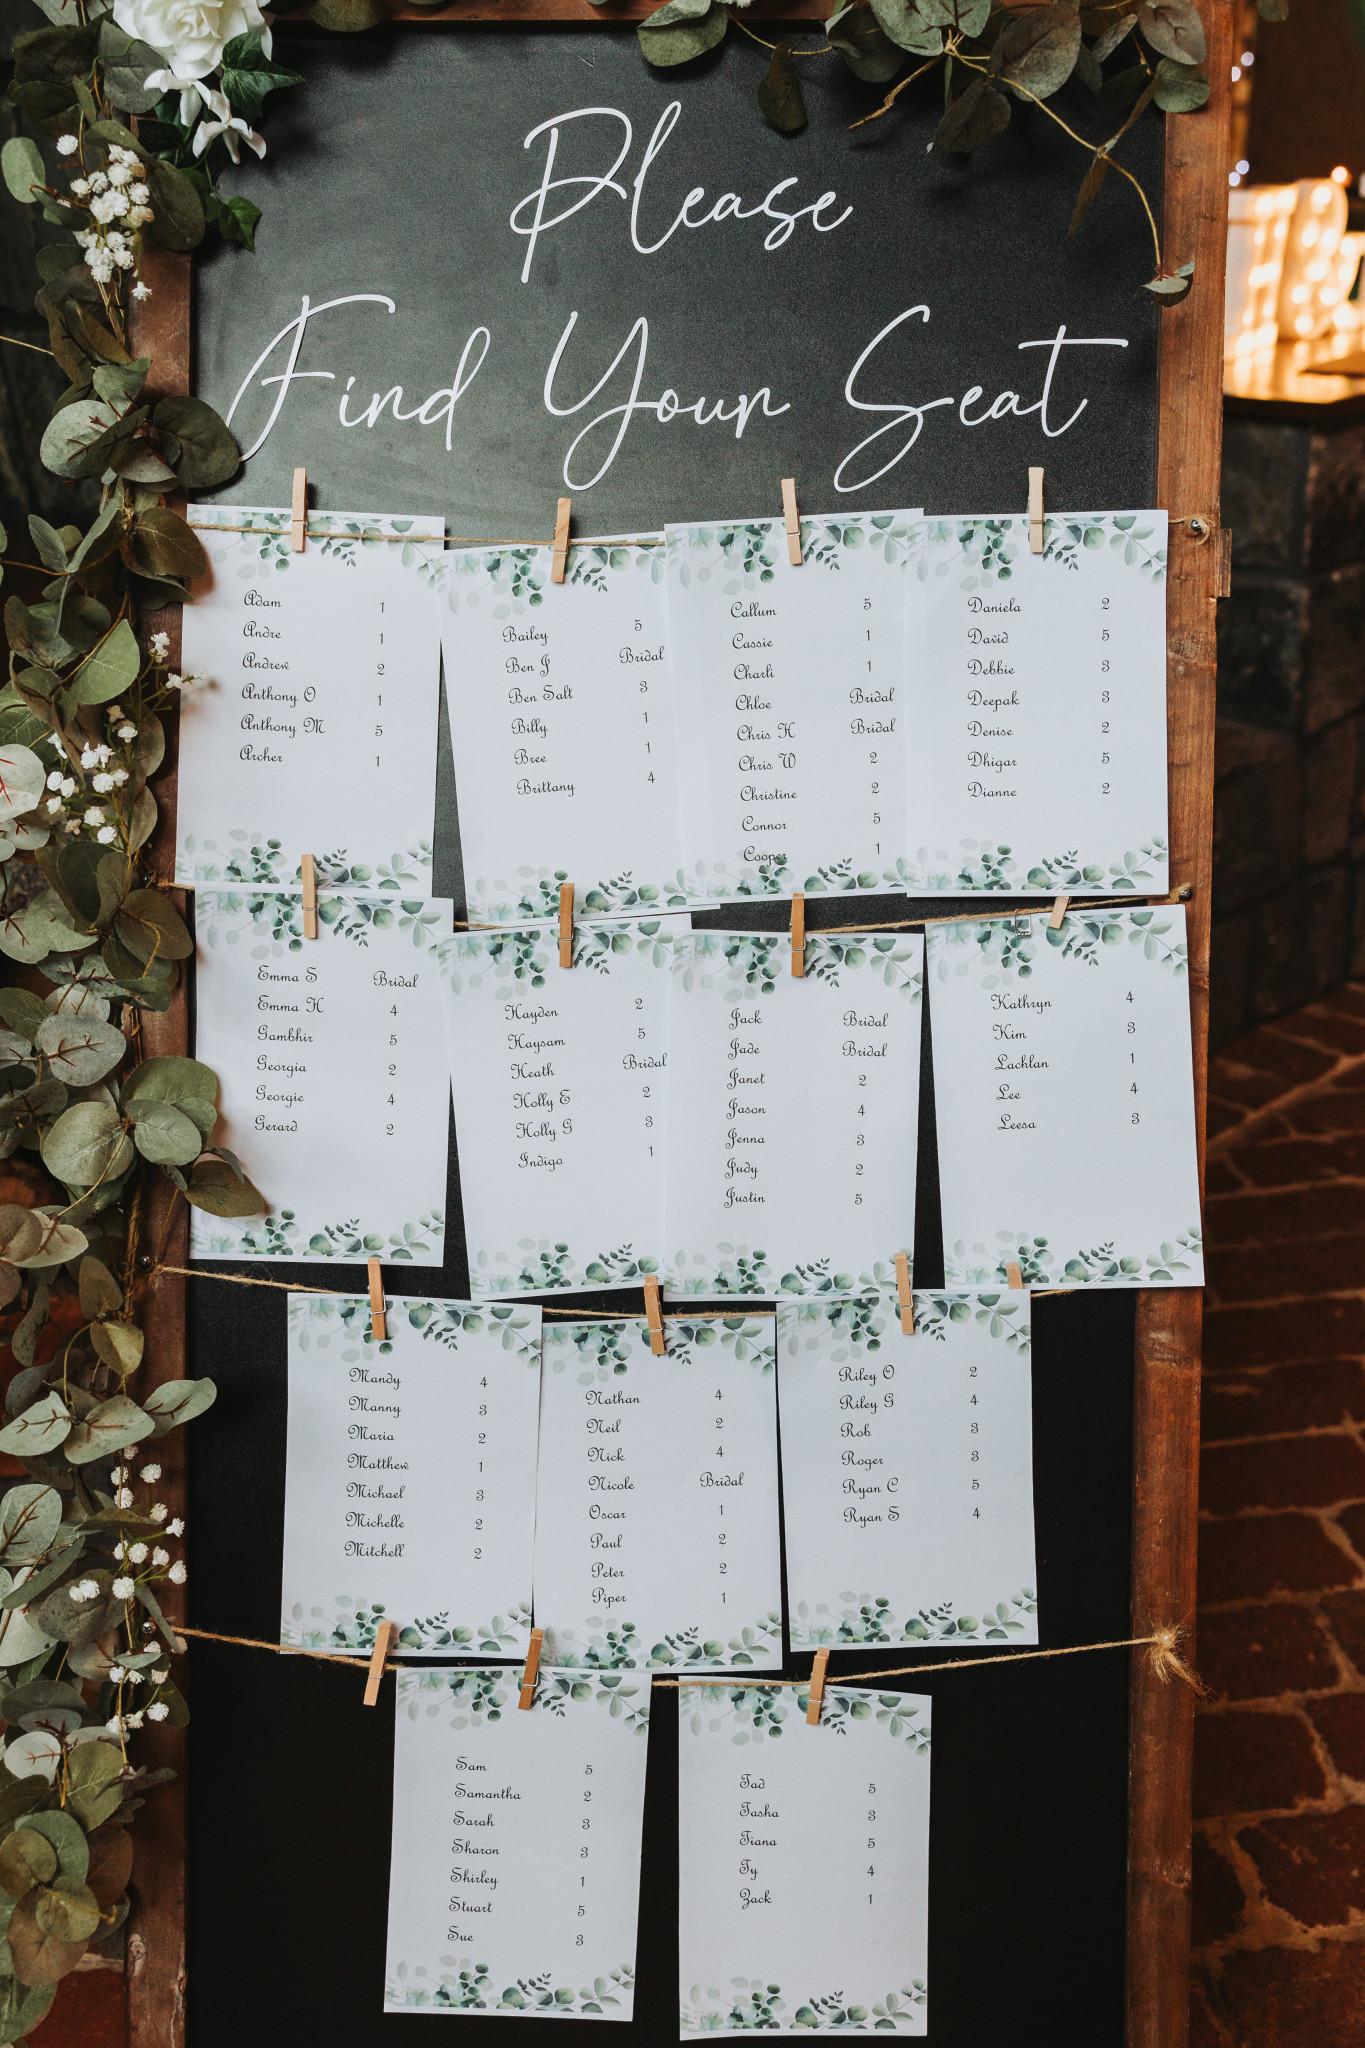 Please
Find Your Seat
Adam 1
Andre 1
Andrew 2
Anthony O 1
Anthony M 5
Archer 1
Bailey 5
Ben J Bridal
Ben Salt 3
Billy 1
Bree 1
Brittany 4
Callum 5
Cassie 1
Charli 1
Chloe Bridal
Chris H Bridal
Chris W 2
Christine 2
Connor 5
Cooper 1
Daniela 2
David 5
Debbie 3
Deepak 3
Denise 2
Dhigar 5
Dianne 2
Emma S Bridal
Emma H 4
Gambhir 5
Georgia 2
Georgie 4
Gerard 2
Hayden 2
Haysam 5
Heath Bridal
Holly E 2
Holly G 3
Indigo 1
Jack Bridal
Jade Bridal
Janet 2
Jason 4
Jenna 3
Judy 2
Justin 5
Kathryn 4
Kim 3
Lachlan 1
Lee 4
Leesa 3
Mandy 4
Manny 3
Maria 2
Matthew 1
Michael 3
Michelle 2
Mitchell 2
Nathan 4
Neil 2
Nick 4
Nicole Bridal
Oscar 1
Paul 2
Peter 2
Piper 1
Riley O 2
Riley G 4
Rob 3
Roger 3
Ryan C 5
Ryan S 4
Sam 5
Samantha 2
Sarah 3
Sharon 3
Shirley 1
Stuart 5
Sue 3
Tad 5
Tasha 3
Tiana 5
Ty 4
Zack 1